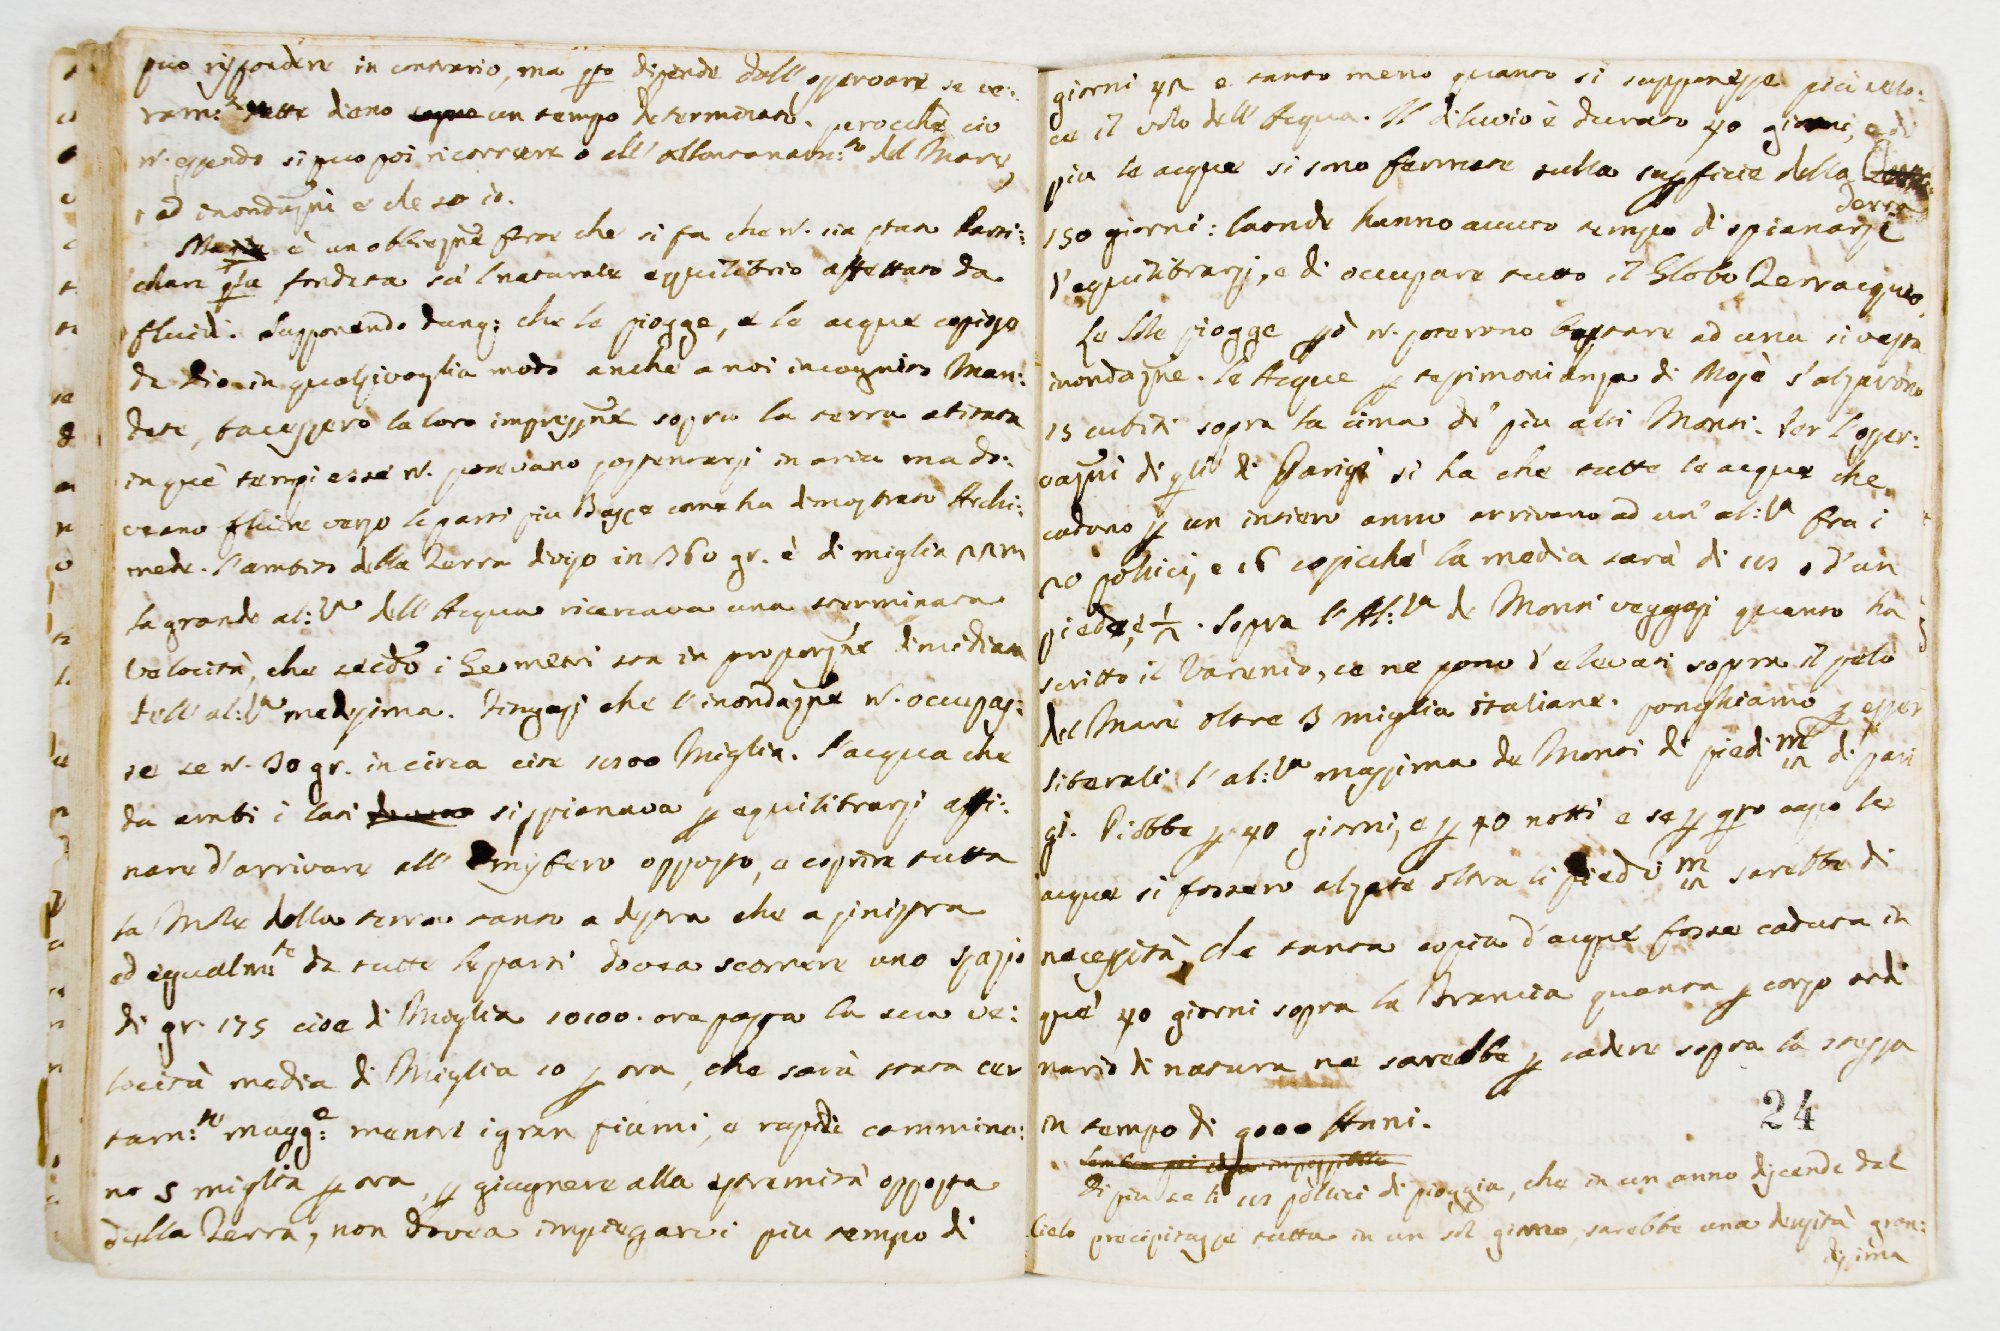 può rispondere in contrario, ma qto dipende dall' osservare se ve:
ram:te tutte diano segue un tempo determinato. perocchè ciò
n. essendo si può poi ricorrere o all' allontanam:to del Mare,
o ad inondazni e che so io.
è un' obbiezne forte che si fa che n. sia stata Parti:
chare qta fondata su 'l naturale equilibrio affettato da
fluidi. Supponendo dunq: che le piogge, e le acque copiose
da Dio in qualsivoglia modo anche a noi incognito Man:
date, facessero la loro impressne sopra la terra abitata
in què tempi esse n. potevano sostentarsi in aria ma do:
veano fluire verso le parti più Basse come ha dimostrato Archi:
mede. l'ambito della Terra diviso in 360 gr. è di miglia
la grande al:za dell' Acqua ricercava una sterminata
Velocità, che secdo i Geometri sta in proporzne dimidiata
dell' al:za medesima. Fingasi che l'inondazne n. occupas:
se se n. 30 gr. incirca cioè Miglia. l'acqua che
da ambi i lati si spianava p equilibrarsi affi:
nare d'arrivare all' emisfero opposto, e coprire tutta
la Mole della terra tanto a destra che a sinistra
ed egualm:te da tutte le parti dovea scorrere uno spazio
di gr. 175 cioe di Miglia 10100. ora posta la sua ve:
locità media di Miglia 10 p ora, che sarà stata cer
tam:te magg:e mentre i gran fiumi, e rapidi cammina:
no 5 miglia p ora, p giugnere alla estremità opposta
della Terra, non dovea impiegarvi più tempo di
giorni 42 e tanto meno quanto si supponesse più velo:
ce il volo dell' Acqua. Il diluvio è durato 40 giorni, e di
più le acque si sono fermate sulla supficie della
Terra
150 giorni: laonde hanno avuto tempo di spianarsi
d'equilibrarsi, e di occupare tutto il Globo Terracqueo.
Le sole piogge pò n. poterono bastare ad una si vasta
inondazne. le Acque p testimonianza di Mosè s'alzavono
15 cubiti sopra la cima de' più alti Monti. Per l'osser:
vazni di qlli di Parigi si ha che tutte le acque che
cadono p un intiero anno arrivano ad un' al:za fra i
20 pollici, e 16 cosicchè la media sarà di 18 o d'un
piede, e 1/2. Sopra l'Al:za de Monti veggasi quanto ha
scritto il Varenio, ce ne sono d'elevati sopra il pelo
del Mare oltre 3 miglia italiane. ponghiamo p esser
liberali l'al:za massima de Monti di piedi m/15 di pari
gi. Piobbe p 40 giorni, e p 40 notti e se p qto capo le
acque si fossero alzate oltra li piedi m/15 sarebbe di
necessità, che tanta copia d'acque fosse caduta in
que' 40 giorni sopra la Francia quanta p corso ordi
nario di natura ne sarebbe p cadere sopra la stessa
in tempo di 9000 Anni.
24
Di più se li 18 pollici di pioggia, che in un anno discende dal
Cielo precipitasse tutta in un sol giorno, sarebbe una densità gran:
dissima